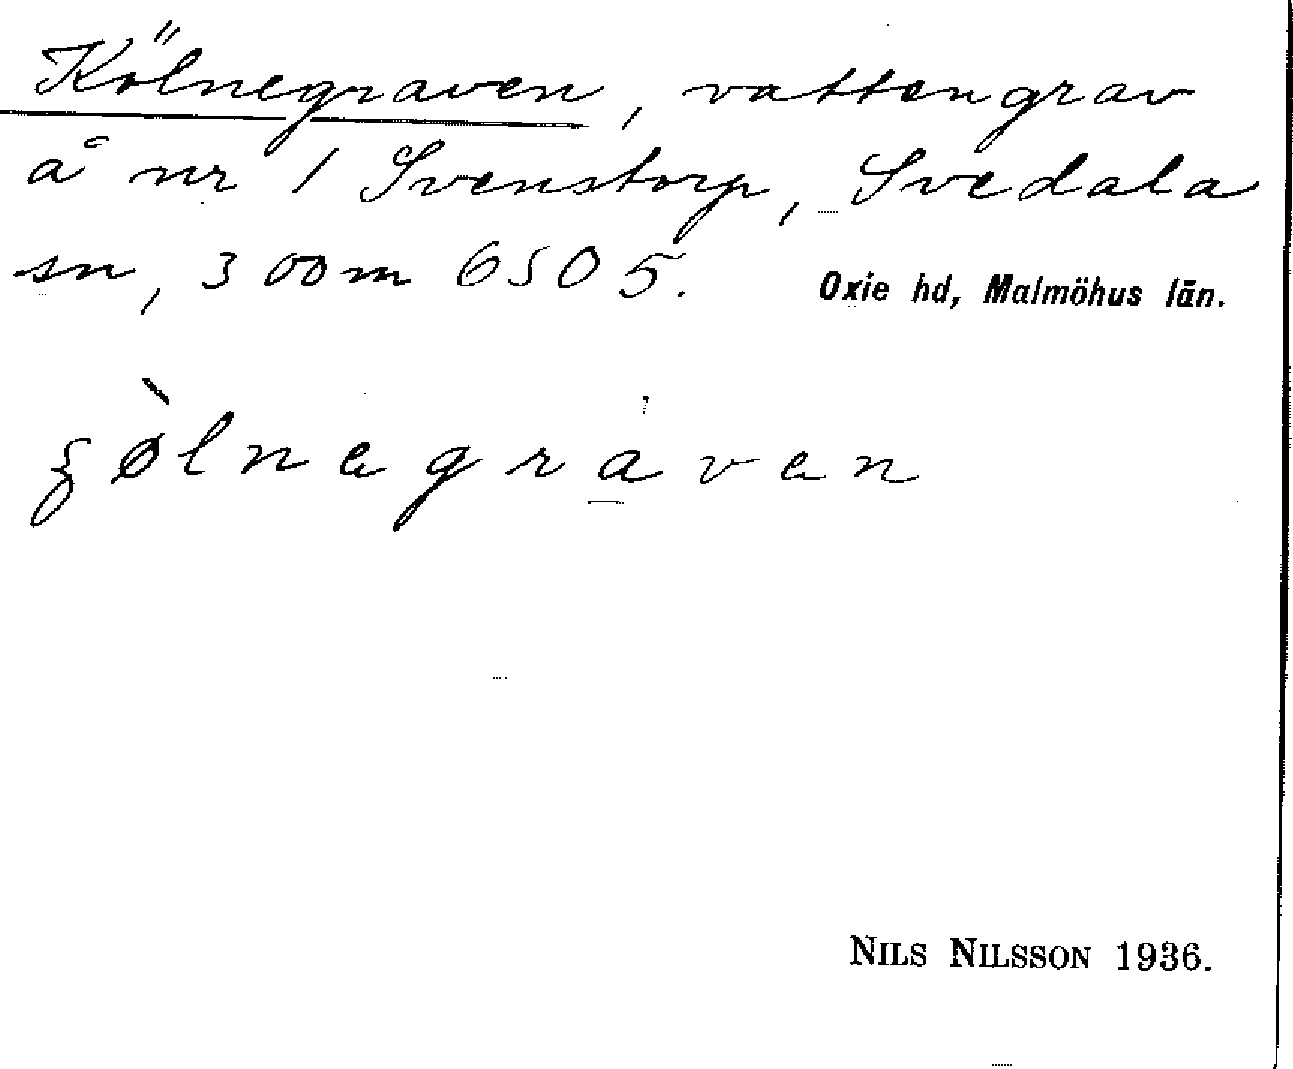 Kölnegraven, vattengrav
å nr 1 Svenstorp, Svedala
sn, 300 m 6SO5. Oxie hd, Malmöhus län.
ʒø̀lnegra̲ven
NILS NILSSON 1936.